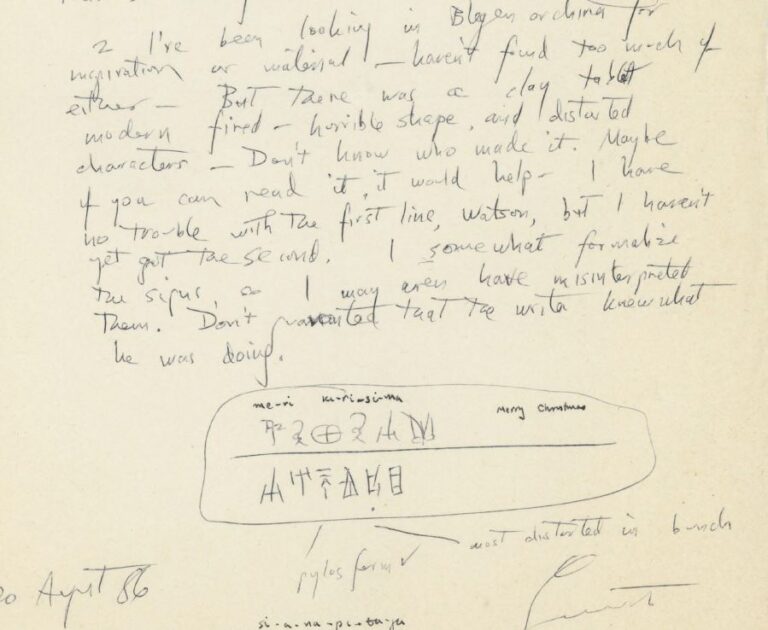 2 I've been looking in Blegen for
inspiration or material – haven't found too much of
either – But there was a clay tablet
modern fired – horrible shape, and distorted
characters – Don't know who made it. Maybe
if you can read it, it would help – I have
no trouble with the first line, Watson, but I haven't
yet got the second. I somewhat formalize
the signs, so I may even have misinterpreted
them. Don't that the writer knew what
he was doing.
me-ri -ri-si-ma Merry Christmas
𐀕𐀪𐀏𐀪𐀯𐀔
most distorted in bunch
pylos form
20 August 86
si-a-na-pi-ta-